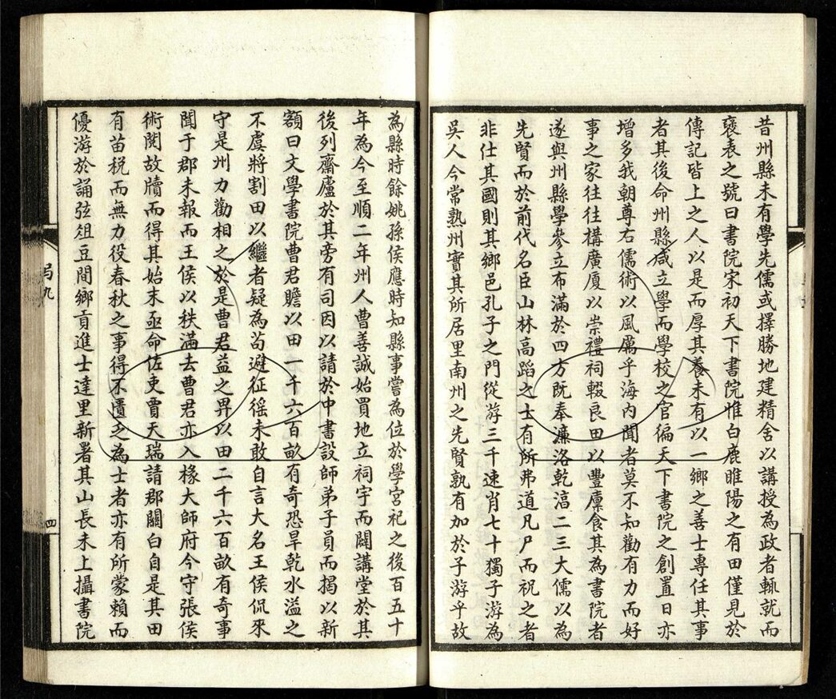 昔州縣未有學先儒或擇勝地建精舍以講授為政者輒就而
襃表之號曰書院宋初天下書院惟白鹿睢陽之有田僅見於
傳記皆上之人以是而厚其養未有以一鄉之善士專任其事
者其後命州縣咸立學而學校之官徧天下書院之創置日亦
增多我朝尊右儒術以風厲乎海內聞者莫不知勸有力而好
事之家往往構廣厦以崇禮祠輟良田以豐廩食其為書院者
遂與州縣學參立布滿於四方既奉濂洛乾淳二三大儒以為
先賢而於前代名臣山林高蹈之士有所弗道凡尸而祝之者
非仕其國則其鄉邑孔子之門從游三千速肖七十獨子游為
吳人今常熟州實其所居里南州之先賢孰有加於子游乎故
為縣時餘姚孫侯應時知縣事嘗為位於學宮祀之後百五十
年為今至順二年州人曹善誠始買地立祠宇而闢講堂於其
後列齋廬於其旁有司因以請於中書設師弟子員而揭以新
額曰文學書院曹君贍以田一千六百畝有奇恐旱乾水溢之
不虞將割田以繼者疑為苟避征徭未敢自言大名王侯侃來
守是州力勸相之於是曹君益之畀以田二千六百畝有奇事
聞于郡未報而王侯以秩滿去曹君亦入椽大師府今守張侯
術閱故牘而得其始末亟命佐吏賈天瑞請郡關白自是其田
有苗稅而無力役春秋之事得不匱乏為士者亦有所蒙賴而
優游於誦弦俎豆間鄉貢進士達里新署其山長未上攝書院
四